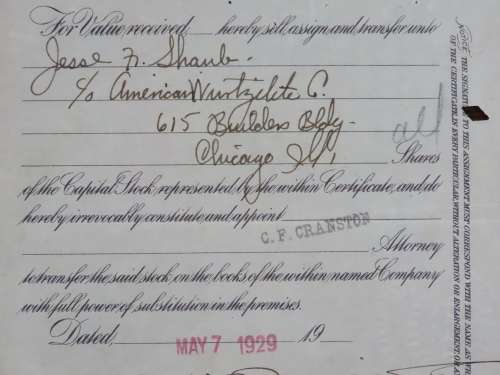 For Value received, hereby sell, assign and transfer unto
Jesse N. Shaub-
c/o American Wurtzilite C.
615 Builders Bldg-
Chicago Ill,
all Shares
of the Capital Stock, represented by the within Certificate, and do
hereby irrevocally constitute and appoint
C.F. CRANSTON
Attorney
to transfer the said stock, on the books of the within, named Company
with full power of substitution in the premises.
Dated, MAY 7 1929 19
NOTICE THE SIGNATURE TO THIS ASSIGNMENT MUST CORRESPOND WITH THE NAME AS
OF THE CERTIFICATE, IN EVERY PARTICULAR, WITHOUT ALTERATION OR ENLARGEMENT OR